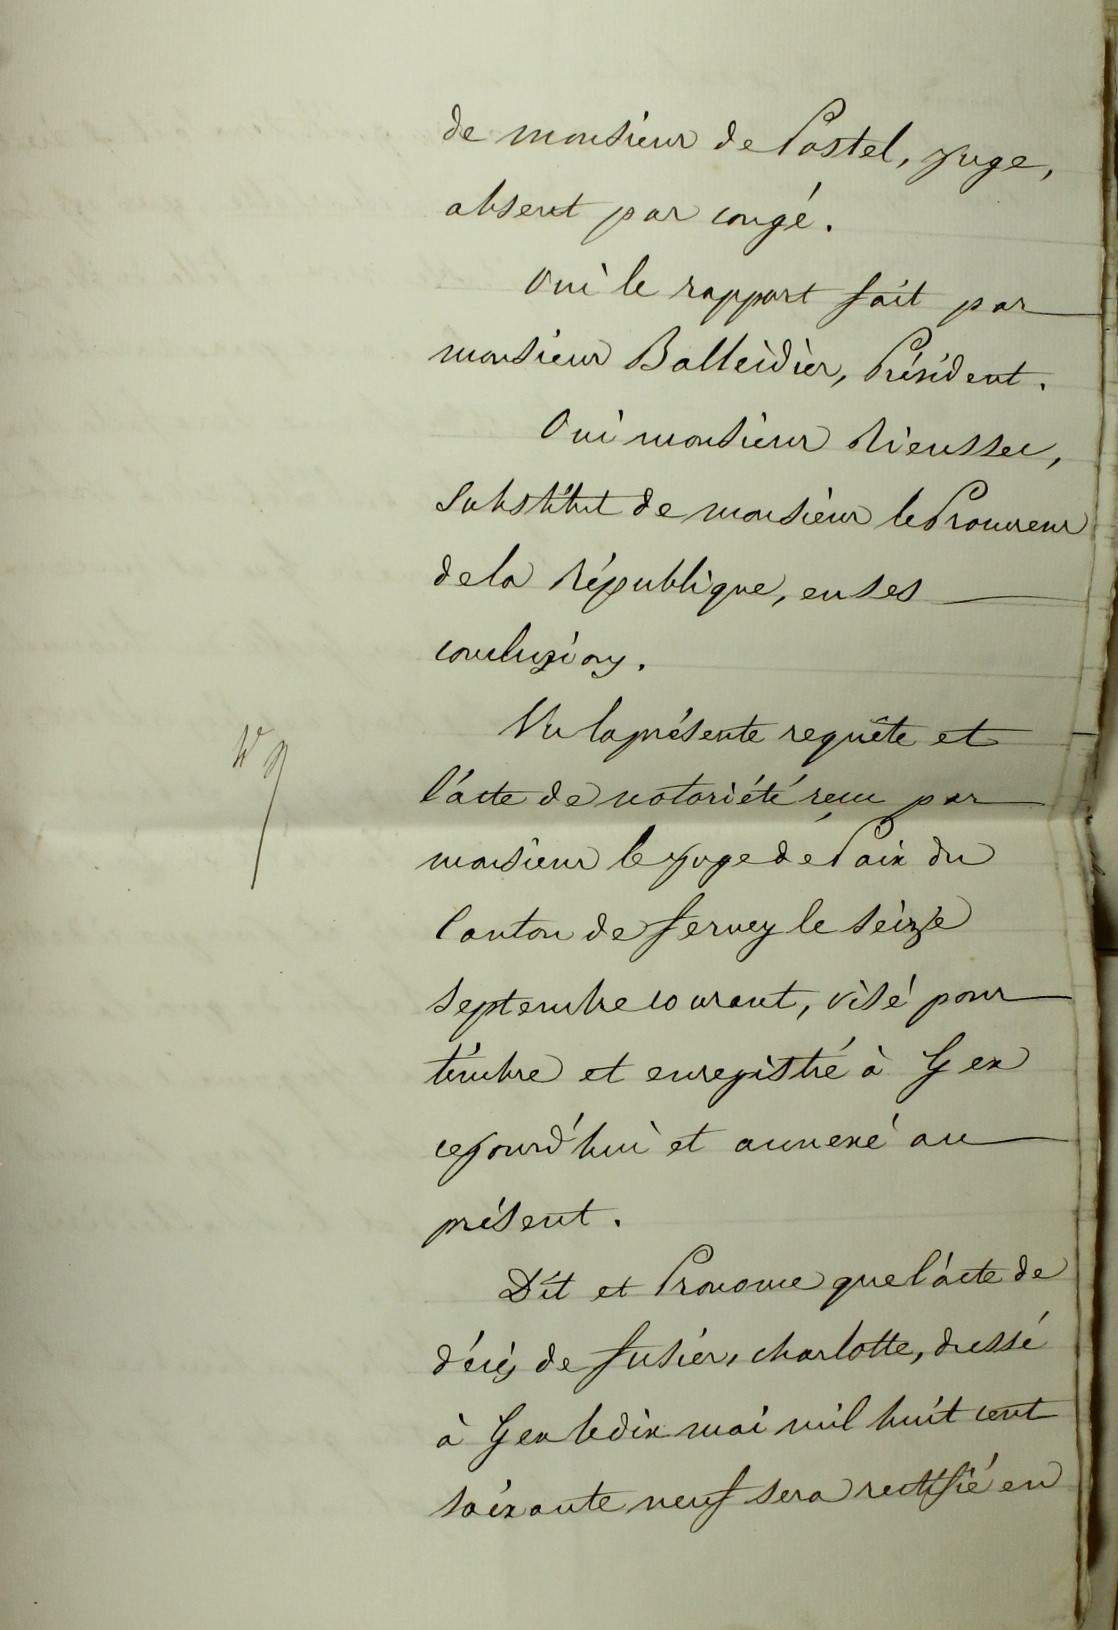 de monsieur de Postel, juge,
absent par congé.
Oui le rapport fait par
monsieur Balleidier, Président.
Oui monsieur Rieussec,
substitut de monsieur le Procureur
de la République, en ses
conclusions.
Vu la présente requête et
l'acte de notoriété reçu par
monsieur le juge de Paix du
Canton de Ferney le seize
septembre courant, visé pour
timbre et enregistré à Gex
cejourd'hui et annexé au
présent.
Dit et Prononce que l'acte de
décès de Fusier, charlotte, dressé
à Gex le dix mai mil huit cent
soixante neuf sera rectifié en